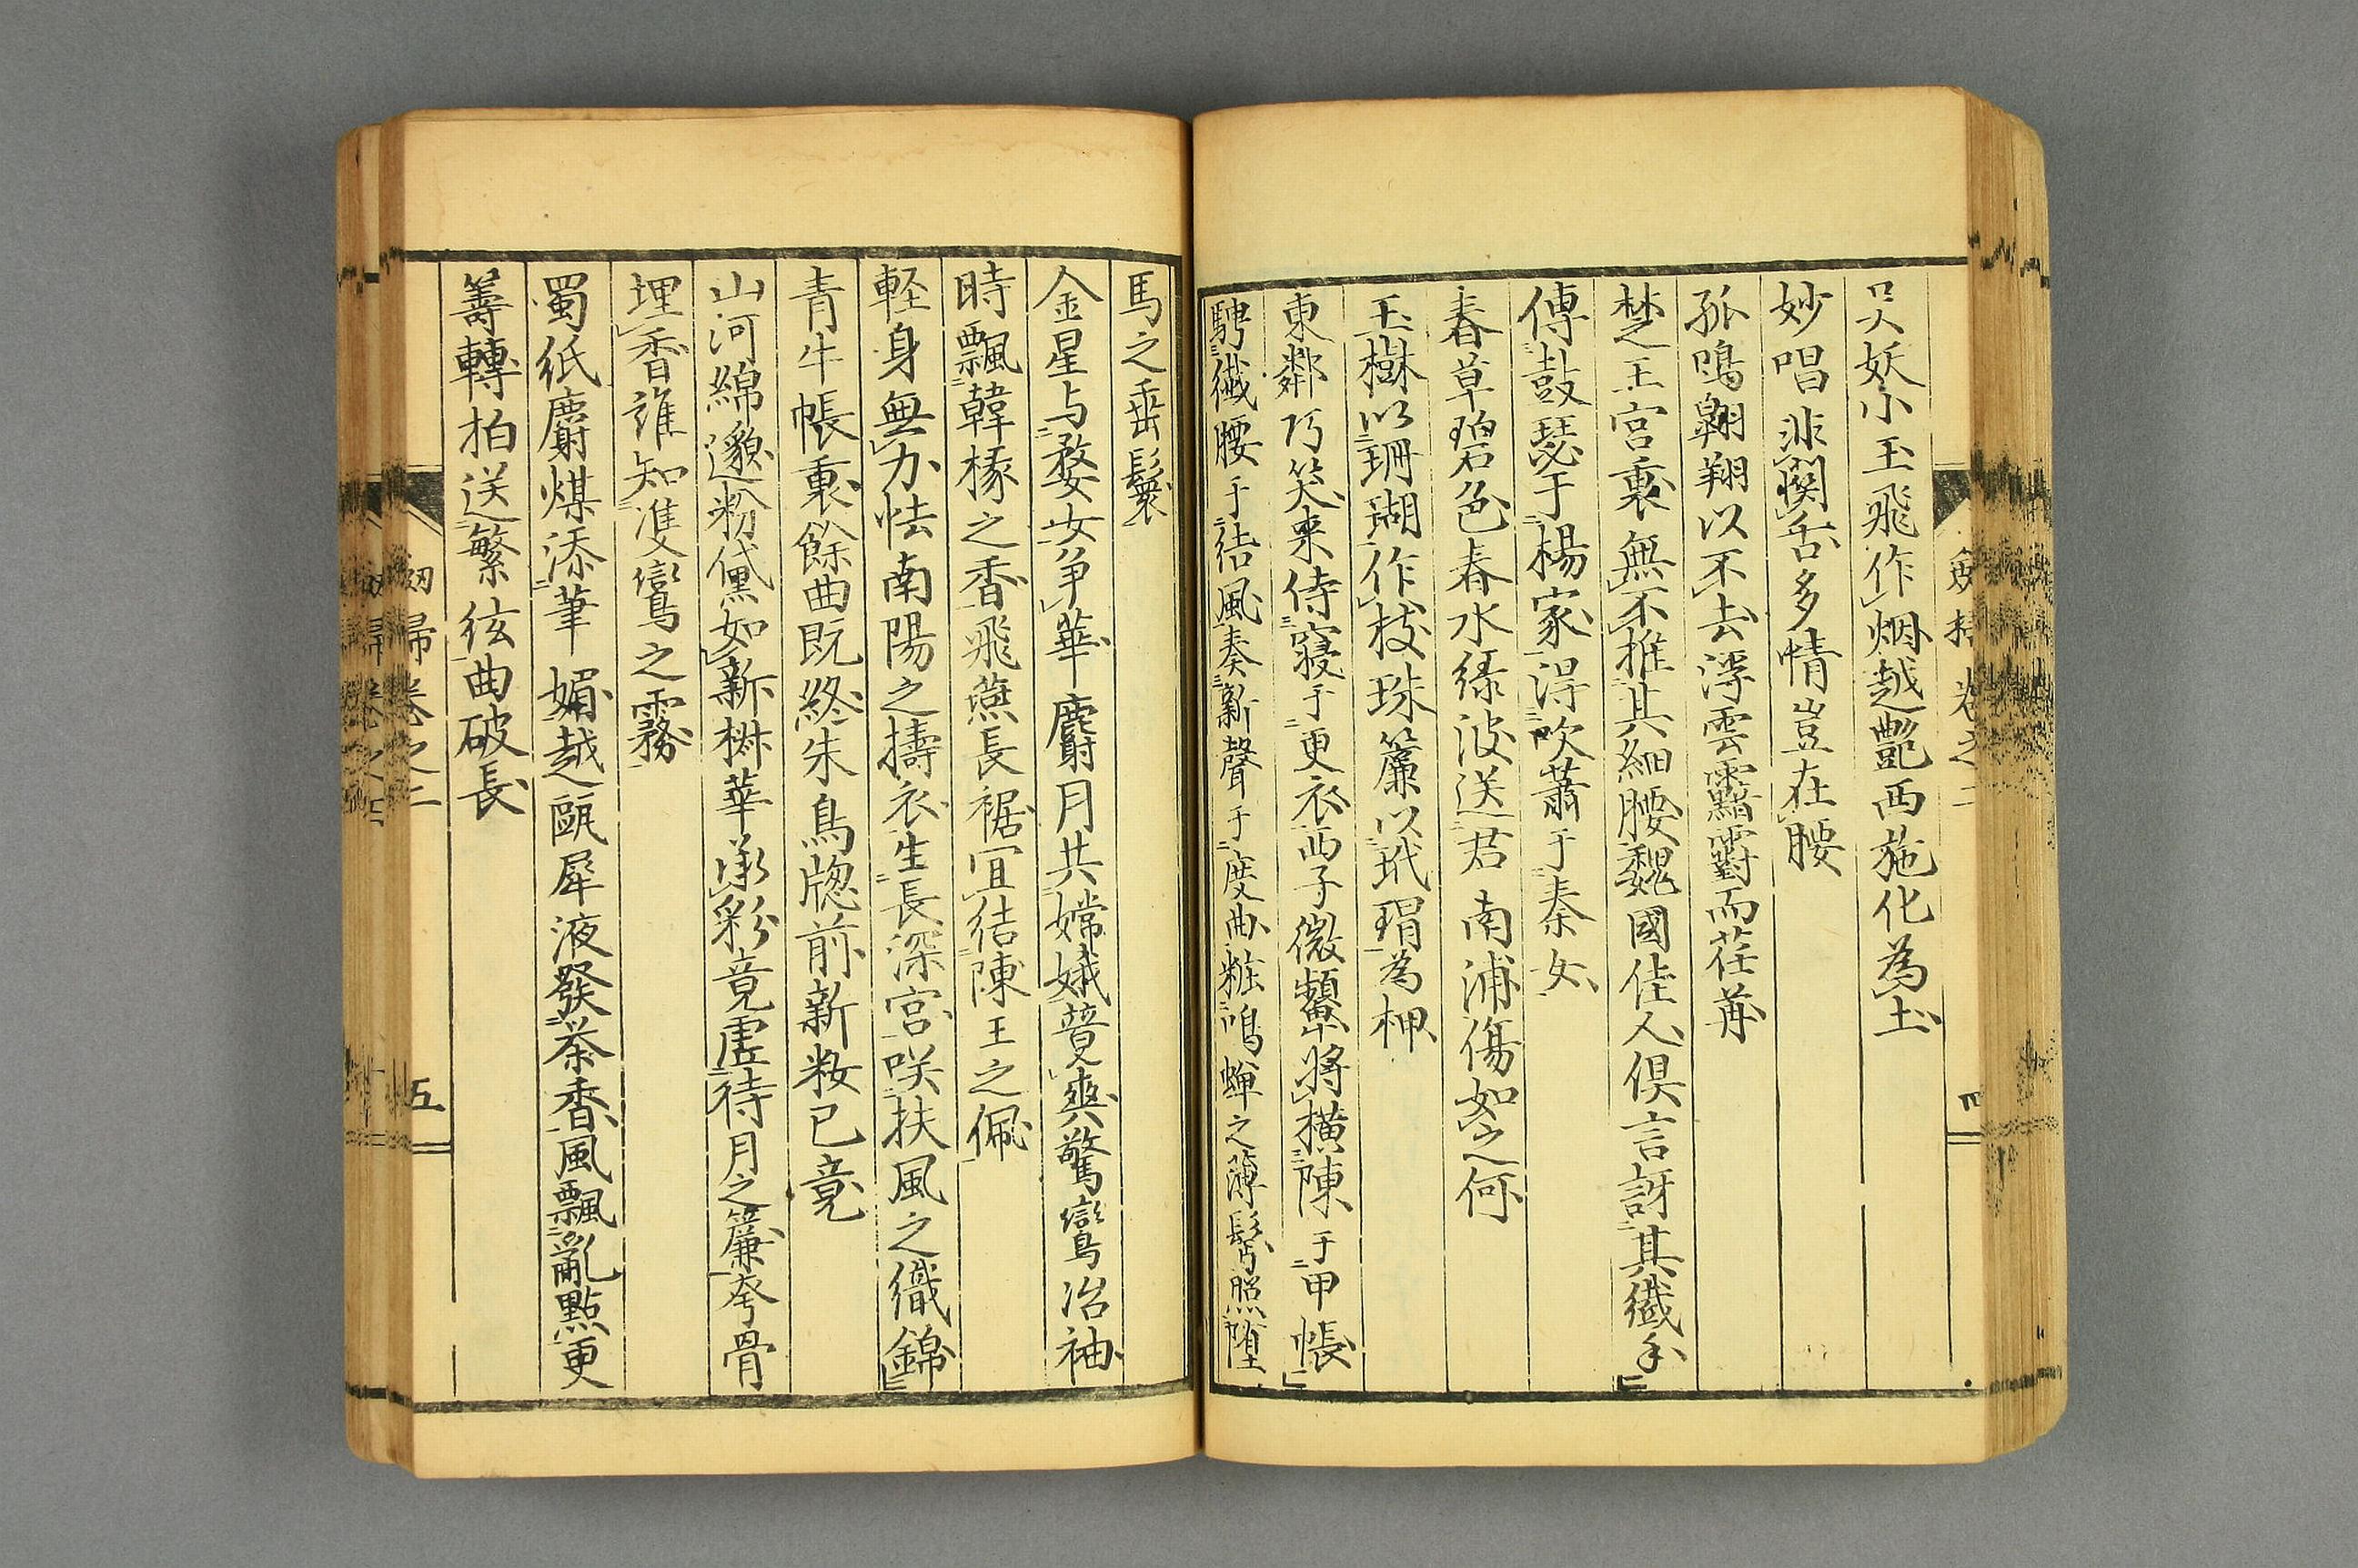 吴妖小玉飛作烟越艷西施化為土
妙唱非関舌多情豈在腰
孤鳴翺翔以不去浮雲霮䨴而荏苒
楚王宮裏無不推其細腰魏國佳人倶言訝其纎手
傅鼓瑟于楊家得吹蕭于秦女
春草碧色春水緑波送君南浦傷如之何
玉樹以珊瑚作枝珠簾以玳瑁為柙
東鄰巧笑来侍寝于更衣西子微顰将横陳于甲帳
騁纎腰于结風奏新聲于度曲粧鳴蝉之薄鬂照堕
馬之垂鬟
金星与婺女争華麝月共嫦娥競爽驚鸞冶袖
時飄韓掾之香飛燕長裾宜结陳王之佩
軽身無力怯南陽之擣衣生長深宮咲扶風之織錦
青牛帳裏餘曲既終朱鳥牕前新粧已竟
山河綿邈粉黛如新椒華承彩竟虚待月之簾夸骨
埋香誰知双鸞之霧
蜀紙麝煤添筆媚越甌犀液發茶香風飄亂點更
籌轉拍送繁絃曲破長
卷之二
五